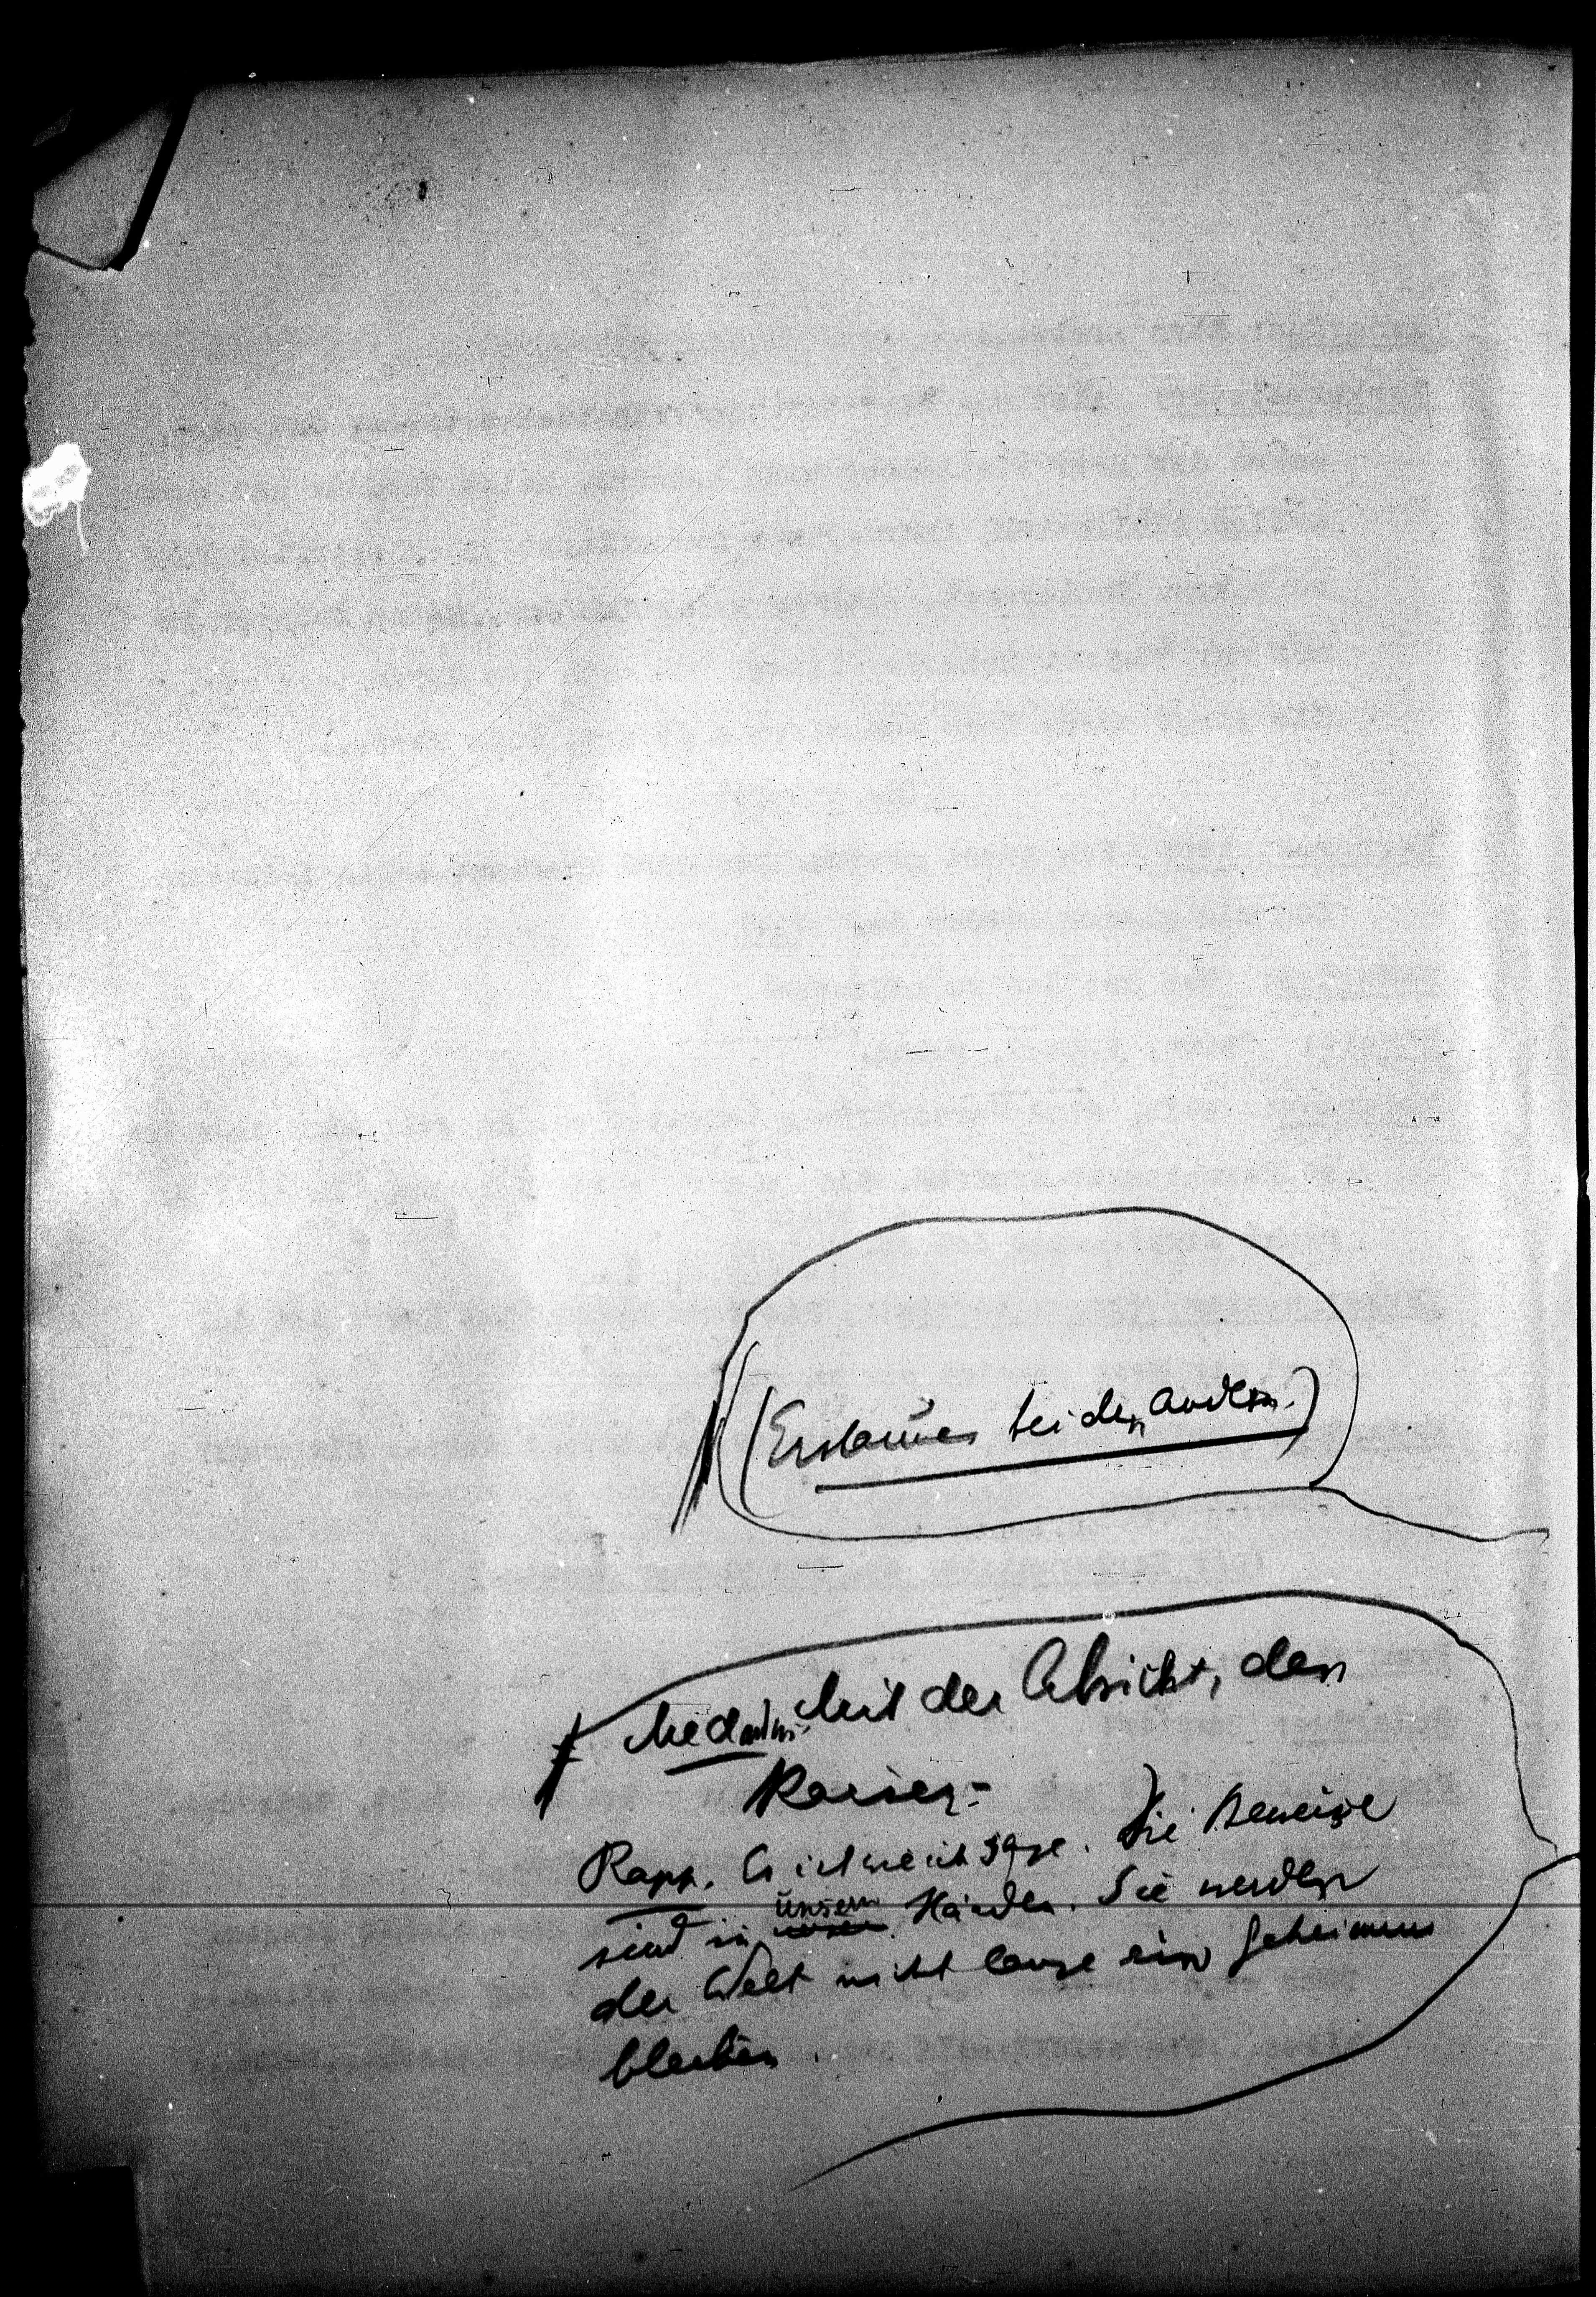 (Erstaunen bei den andern.)
Mit der Absicht, den
Kaiser-
Rapp. Es ist wie ich sage. Die Beweise
sind in unsern Händen. Sie werden
der Welt nicht lange ein Geheimnis
bleiben.